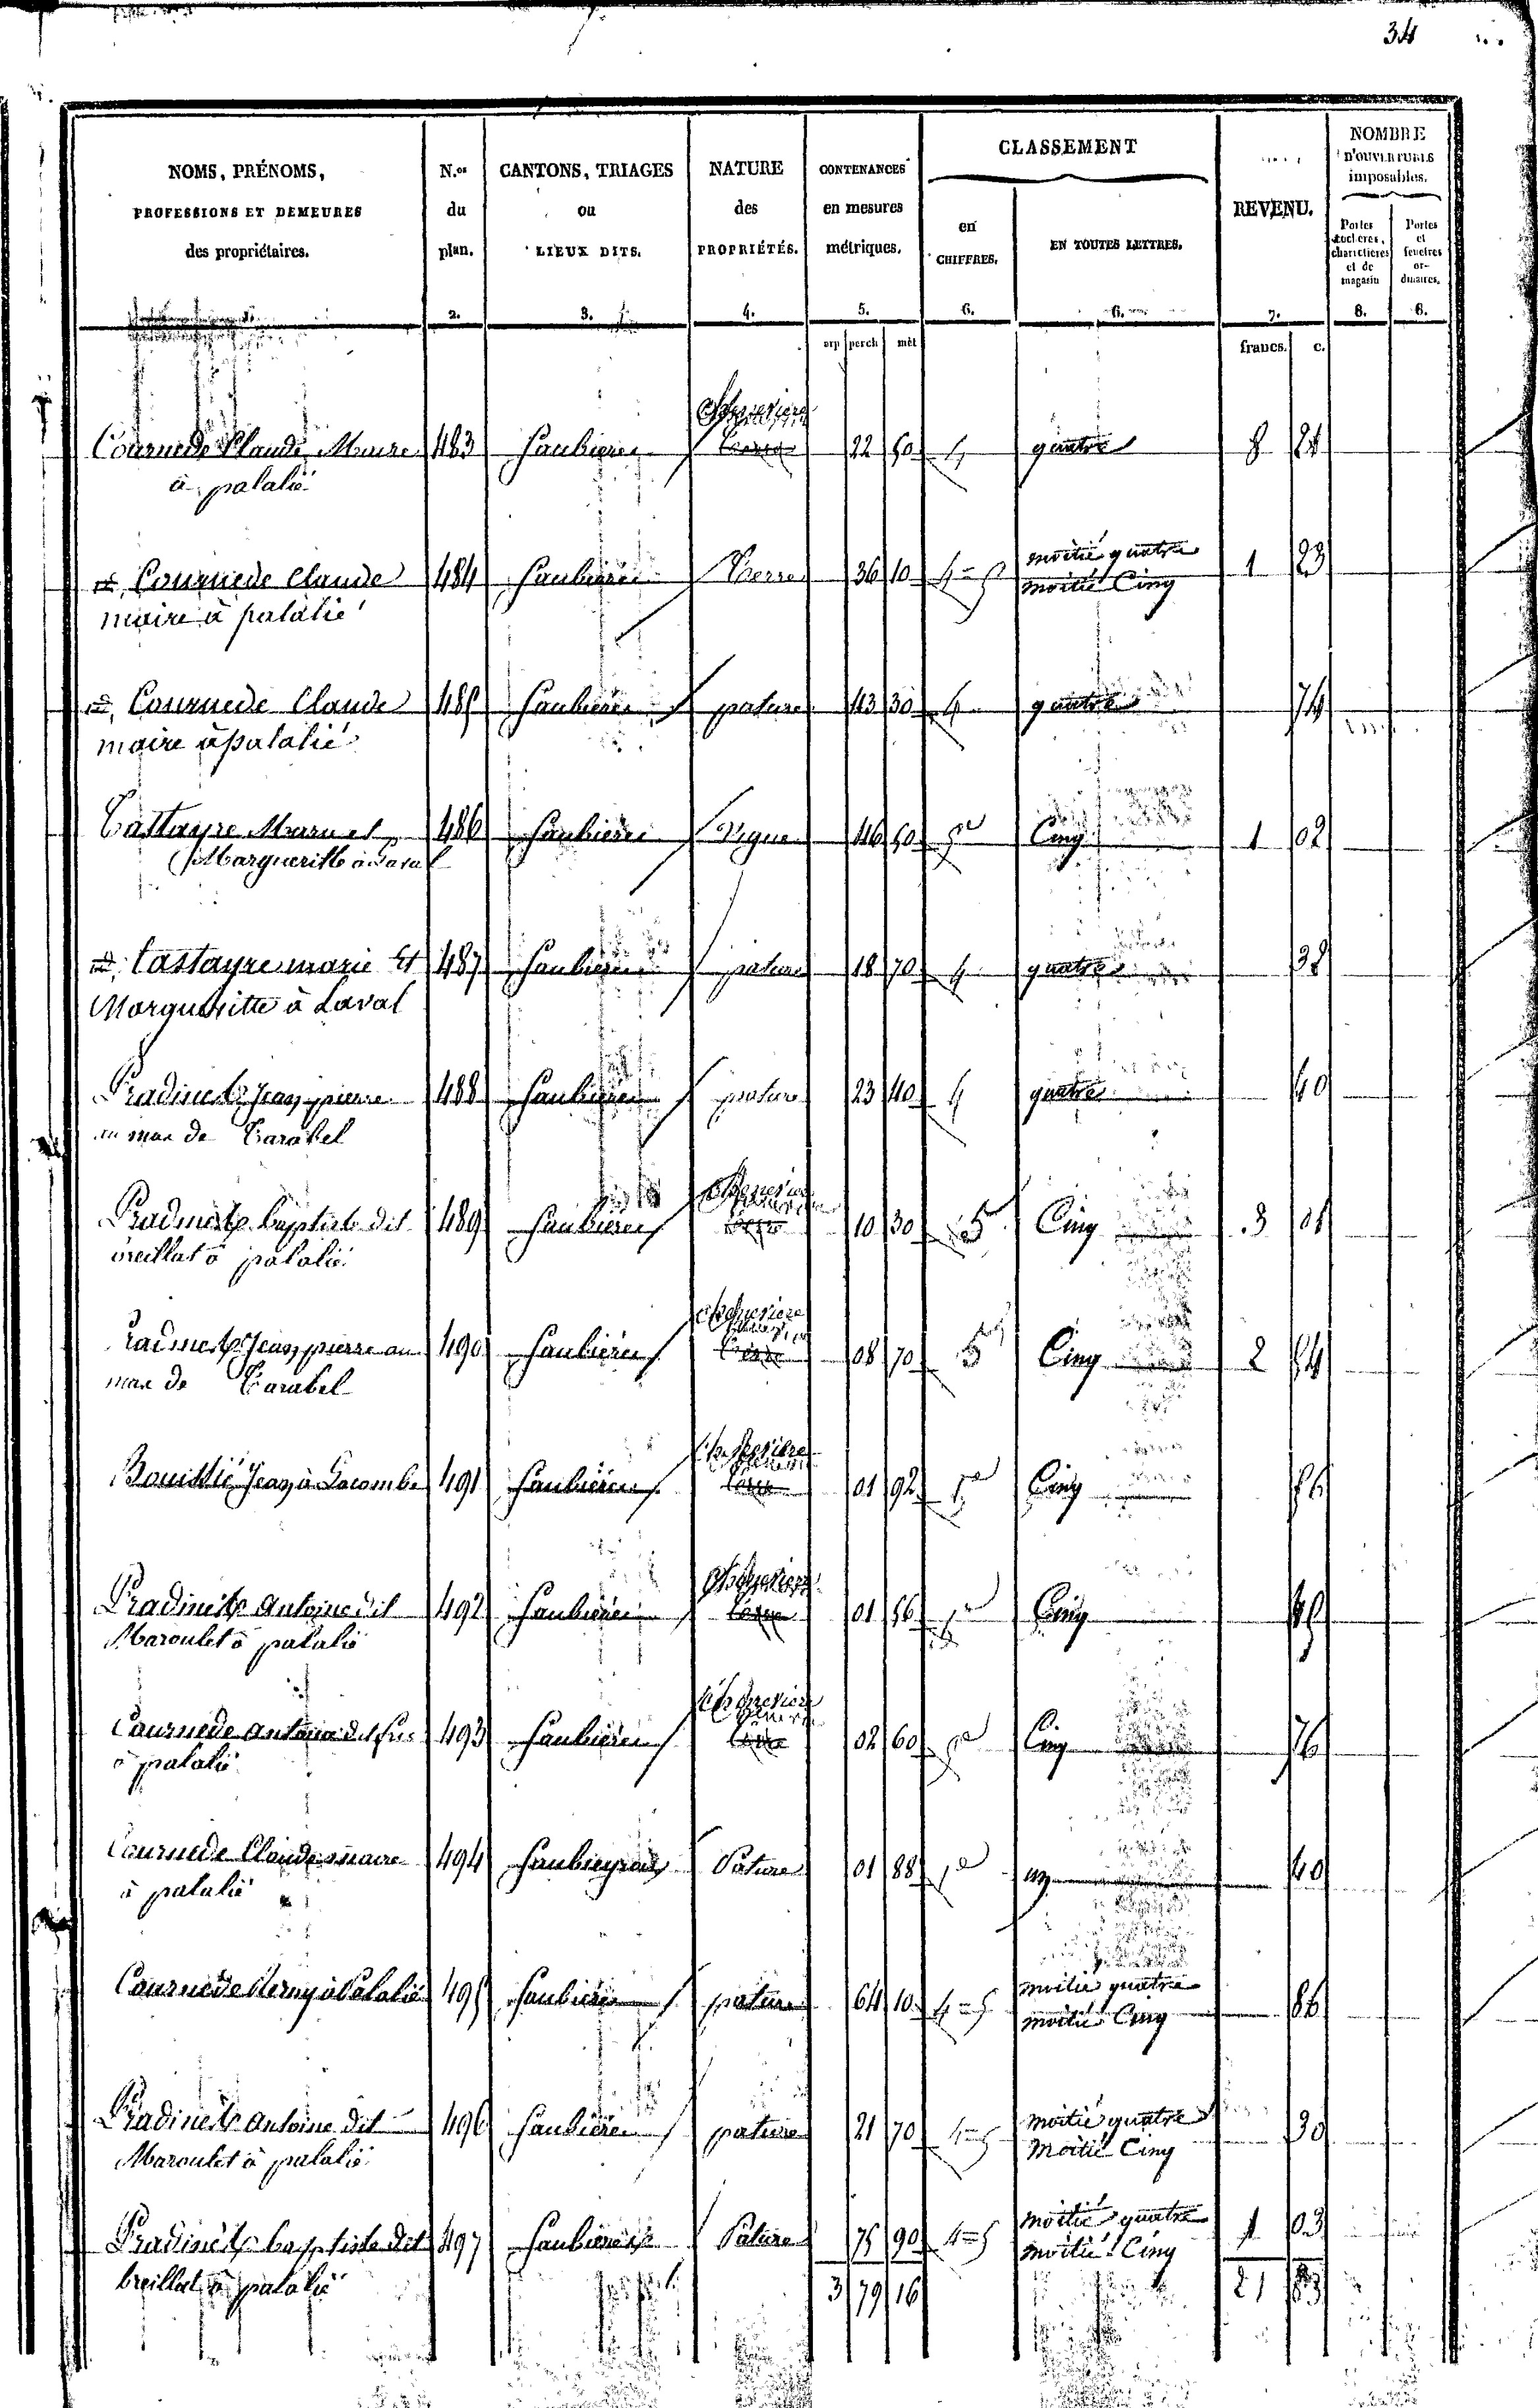 34
NOMS, PRÉNOMS, PROFESSIONS ET DEMEURES des propriétaires. | N.os du plan. | CANTONS, TRIAGES ou LIEUX DITS. | NATURE des PROPRIÉTÉS. | CONTENANCES en mesures métriques. | CLASSEMENT en CHIFFRES. | EN TOUTES LETTRES. | REVENU. | NOMBRE D'OUVERTURES imposables. Portes cocheres, charretieres et de magasin | Portes et fenetres ordinaires.
2. 3. 4. 5. 6. 6. 7. 8. 8.
arp perch mèt francs. c.
Chenevière
Cournede Claude Maire 483 Saubieres Terre 22 50 4 quatre 8 24
à palalié
id. Cournede Claude 484 Saubieres Terre 36 10 4=5 moitié quatre moitié Cinq 1 23
maire à palalié
id. Cournede Claude 485 Saubieres pature 43 30 4 quatre 74
maire à palalié
Castayre Marie et 486 Saubieres Vigne 46 50 5e Cinq 1 02
Margueritte à Laval
id. Castayre marie Et 487 Saubieres pature 18 70 4 quatre 32
Margueritte à Laval
Pradines Jean pierre 488 Saubieres pature 23 40 4 quatre 40
au mas de Carabel
Cheneviere
Pradines Baptiste dit 489 Saubieres Terre 10 30 5 Cinq 3 01
breillat à palalié
Cheneviere
Pradines Jean pierre au 490 Saubieres Terre 08 70 5 Cinq 2 54
mas de Carabel
Cheneviere
Bouissié Jean à Lacombe 491 Saubieres Terre 01 92 5e Cinq 56
Cheneviere
Pradines Antoine dit 492 Saubieres Terre 01 56 5e Cinq 45
Maroulet à palalié
Cheneviere
Cournede Antoine dit 493 Saubieres Terre 02 60 5e Cinq 76
à palalié
Cournede Claude maire 494 Saubieyres Pature 01 88 1e un 40
à palalié
Cournede Remy à Palalié 495 Saubieres pature 64 10 4=5 moitié quatre moitié Cinq 86
Pradines Antoine dit 496 Saubieres pature 21 70 4=5 moitié quatre Moitié Cinq 30
Maroulet à palalié
Pradines baptiste dit 497 Saubieres Pature 75 90 4=5 moitié quatre moitié Cinq 1 03
breillat à palalié 3 79 16 21 83